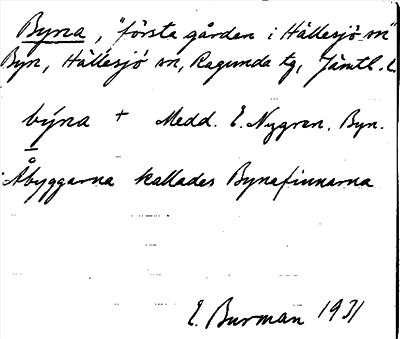 Byna, "första gården i Hällesjö sn"
Byn, Hällesjö sn, Ragunda tg, Jämtl. l.
býna + Medd. E. Nygren, Byn.
Åbyggarna kallades Bynafinnarna
E. Burman 1931